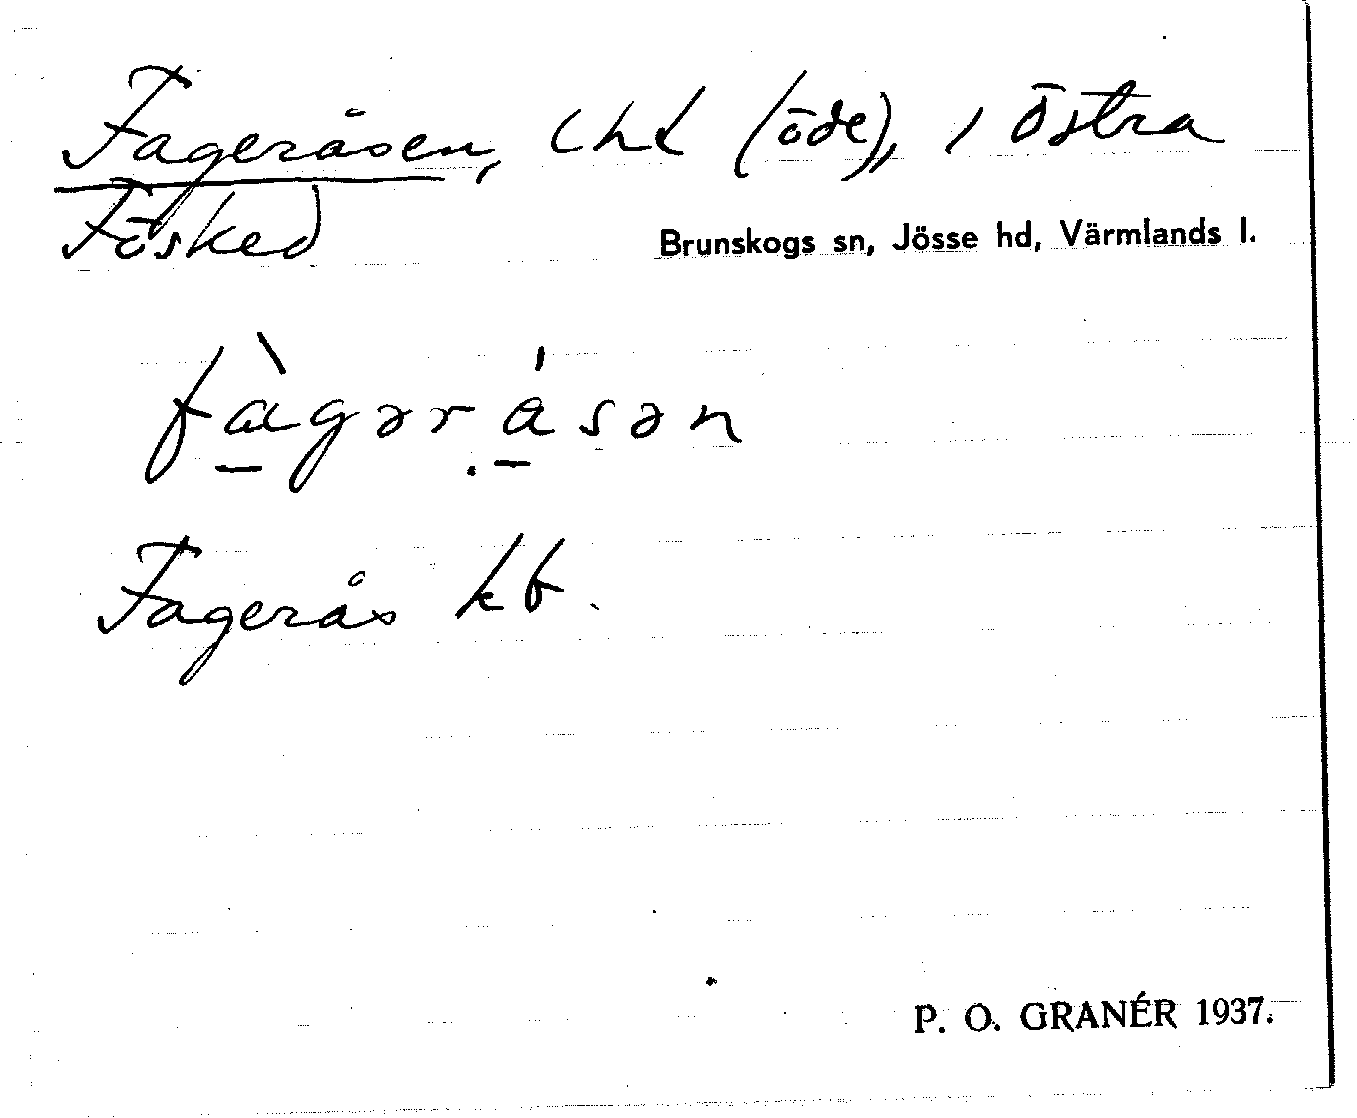 Fageråsen, lht (öde), i Östra
Fösked
Brunskogs sn, Jösse hd, Värmlands l.
fàgər.åsən
Fagerås kb.
P. O. GRANÉR 1937.